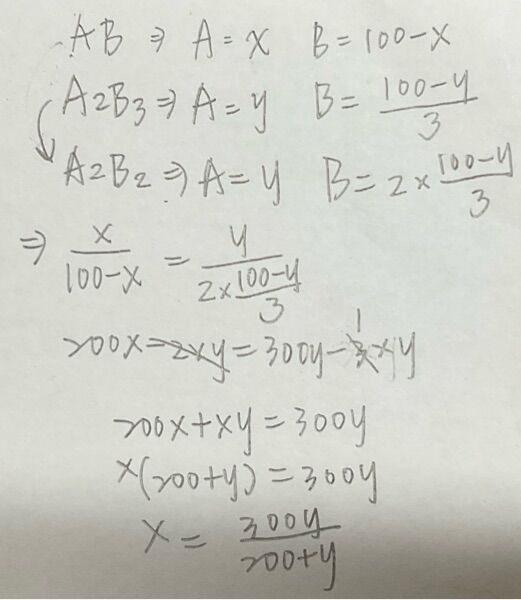 AB ⇒ A = x B = 100-x
A2B3 ⇒ A = y B = \frac{100-y}{3}
A2B2 ⇒ A = y B = 2 × \frac{100-y}{3}
⇒ \frac{x}{100-x} = \frac{y}{2×\frac{100-y}{3}}
200x - 2xy = 300y - 1 3xy
200x + xy = 300y
x(200+y) = 300y
x = \frac{300y}{200+y}